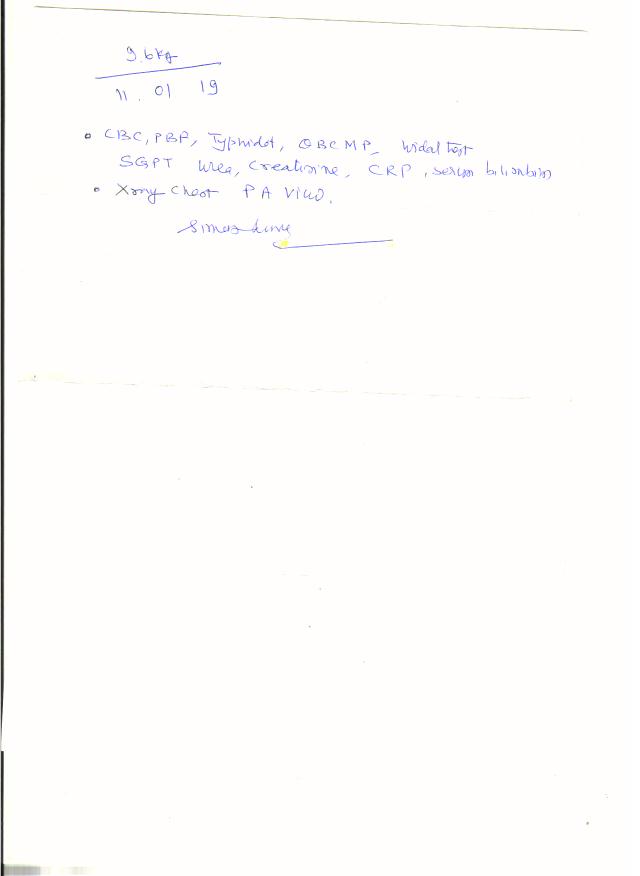 9.6 KG
11 . 01 19
CBC, PBP, Typhidot, QBC MP, Widal Test
SGPT Urea, Creatinine, CRP, serum bilirubin
Xray Chest P A View.